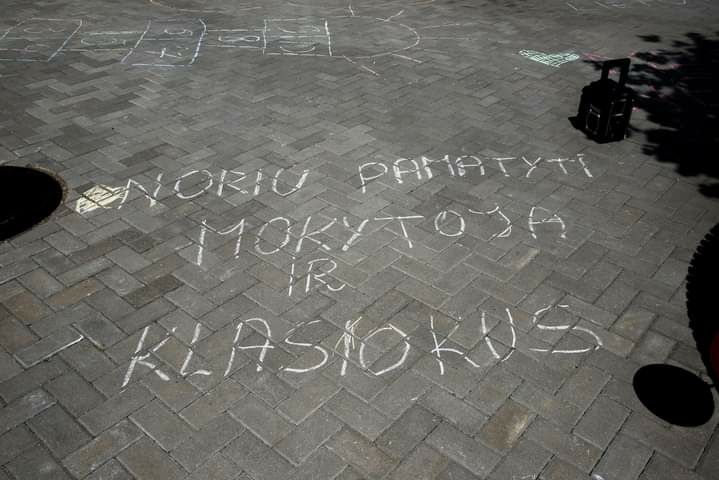 NORIU PAMATYTI
MOKYTOJA
IR
KLASIOKUS